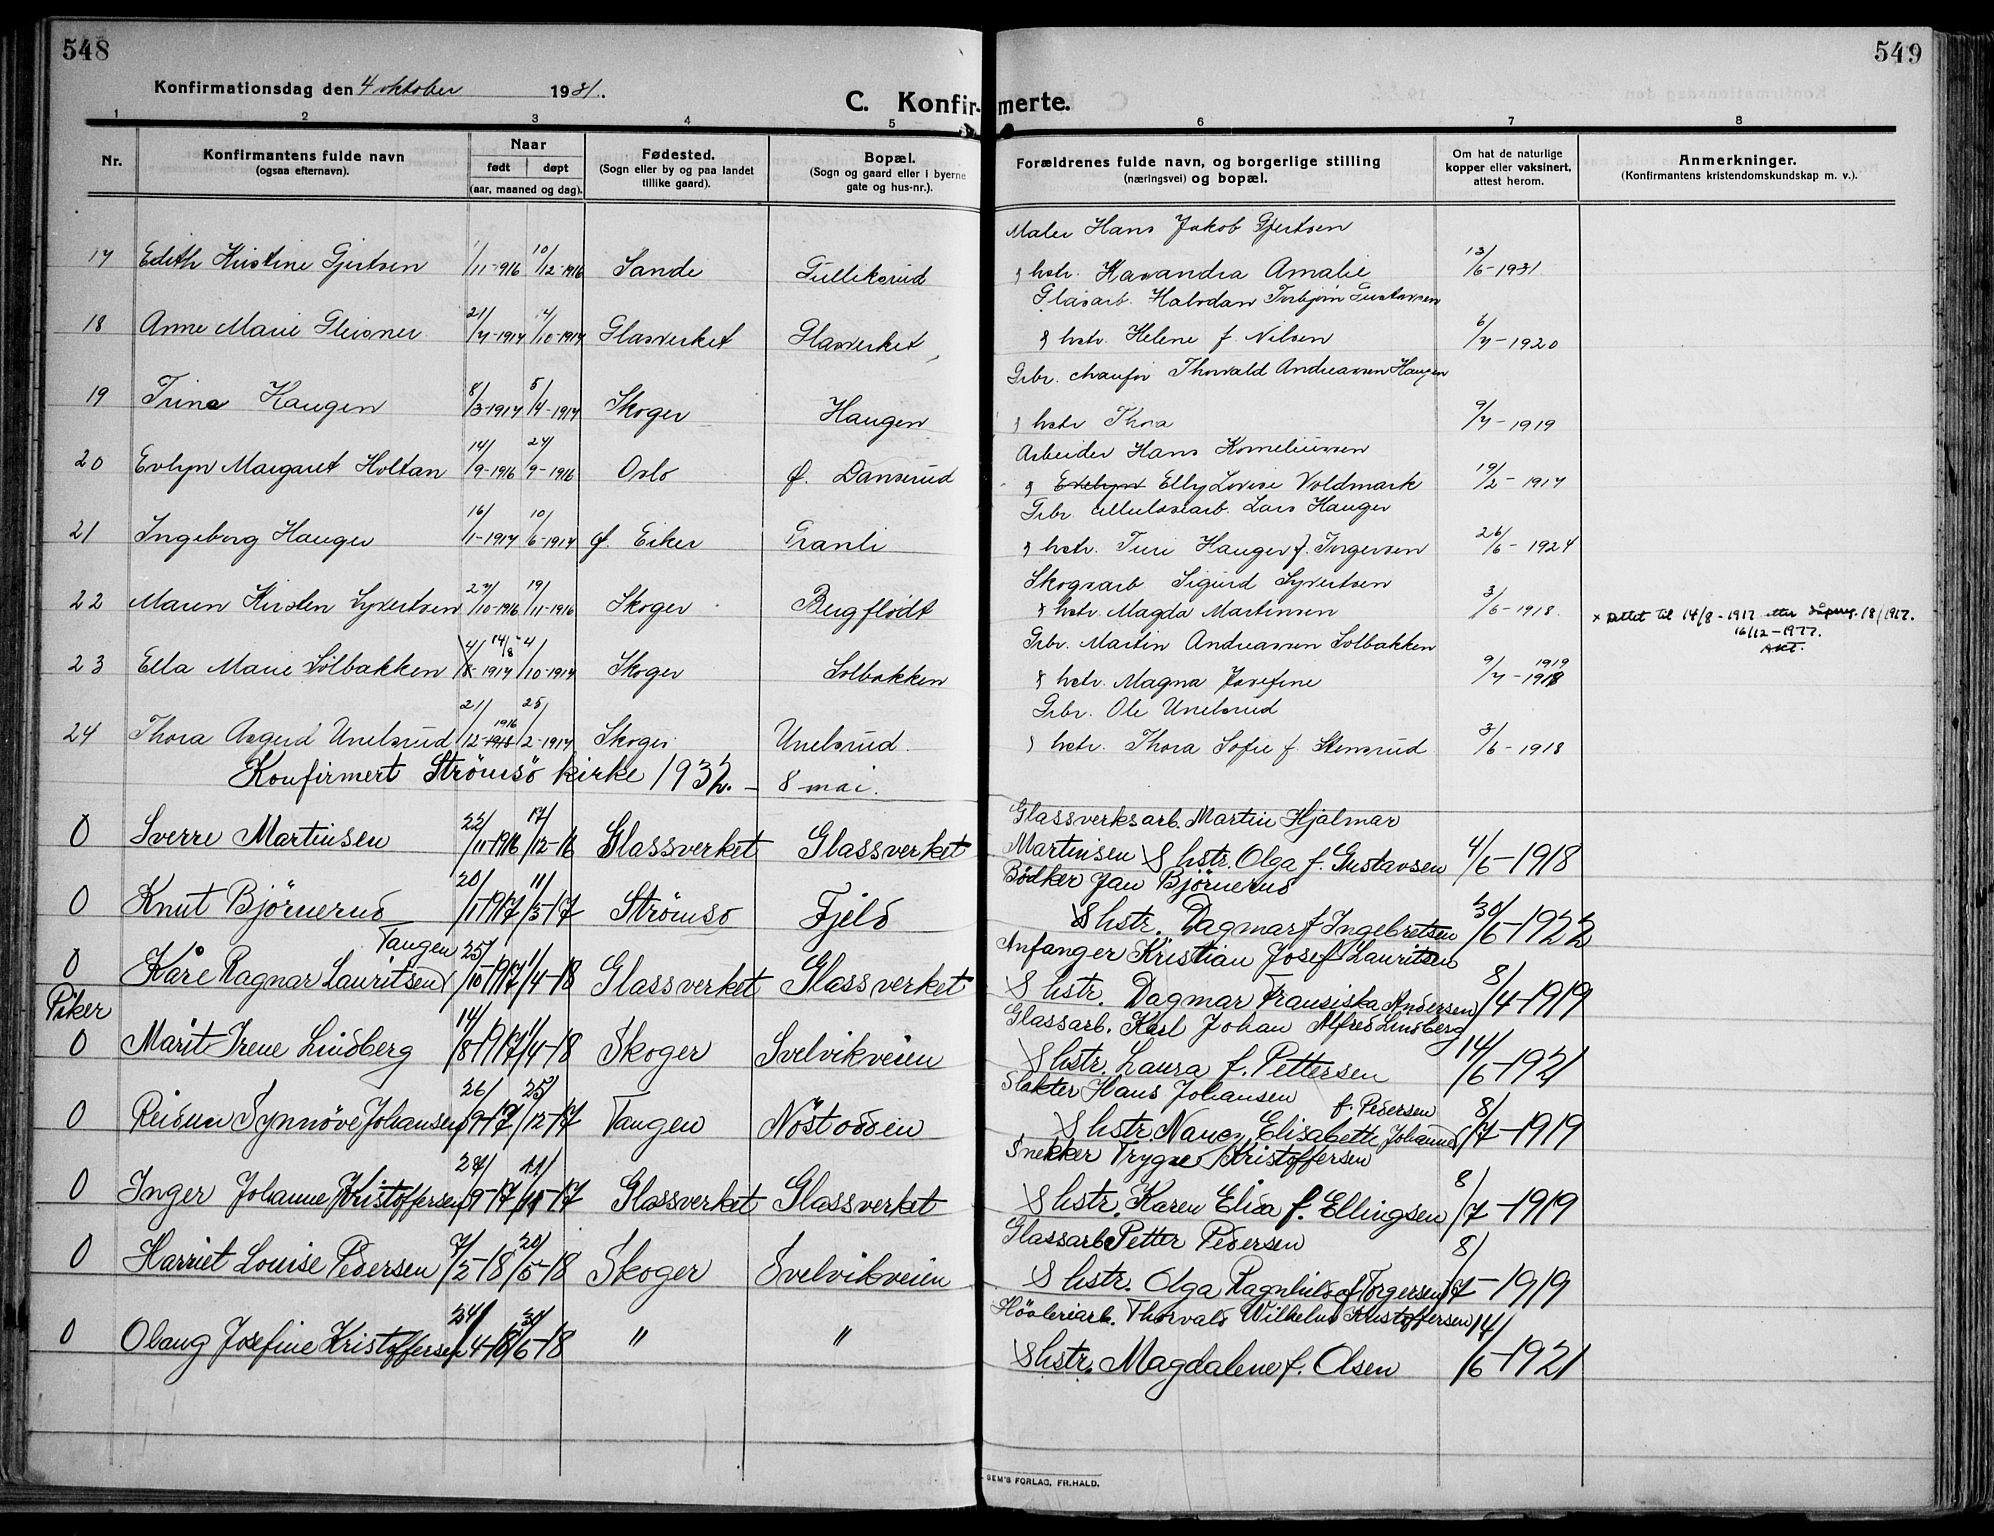 548
549
Konfirmationsdag den 4 oktober 1931.
C. Konfir-merte.
1 2 3 4 5 6 7 8
Nr.
Konfirmantens fulde navn
(ogsaa efternavn).
Naar
født døpt
(aar, maaned og dag).
Fødested.
(Sogn eller by og paa landet
tillike gaard).
Bopæl.
(Sogn og gaard eller i byerne
gate og hus-nr.).
Forældrenes fulde navn, og borgerlige stilling
(næringsvei) og bopæl.
Om hat de naturlige
kopper eller vaksinert,
attest herom.
Anmerkninger.
(Konfirmantens kristendomskundskap m. v.).
Maler Hans Jakob Gjertsen
17 Edith Kristine Gjertsen 1/11-916 10/12-1916 Sande Tulliksrud & hstr. Kasandra Amalie 13/6-1931
Glasarb. Halvdan Torbjørn Gustavsen
18 Anne Marie Gleisner 21/7-1917 14/10-1917 Glasverket Glasverket & hstr. Helene f. Nilsen 6/7-1920
Gbr. chaufør Thorvald Andreassen Haugen
19 Trine Haugen 8/3-1917 5/4-1917 Skoger Haugen & hstr Thora 9/7-1919
Arbeider Hans Korneliussen
20 Evlyn Margaret Holtan 14/9-1916 24/9-1916 Oslo ø. Dansrud & Evelyn Elly Lovise Voldmark 19/2-1917
Gbr. cellulosearb. Lars Hauger
21 Ingeborg Hauger 16/1-1917 10/6-1917 ø. Eiker Granli & hstr. Turi Hauger f. Torgersen 26/6-1924
Skogsarb Sigurd Syvertsen
22 Maren Kirsten Syvertsen 27/10-1916 19/11-1916 Skoger Bergflødt & hstr. Magda Martinsen 3/6-1918.
x Rettet til 14/8-1917 etter dåpsreg. 18/1917.
16/12-1977.
Gbr. Martin Andreassen Solbakken
23 Ella Marie Solbakken 4/8-1917 14/8 4/10-1917 Skoger Solbakken & hstr. Magna Josefine 9/7-1918 1919
Gbr. Ole Unelsrud
24 Thora Asgerd Unelsrud 21/12-1918 1916 25/2-1917 Skoger Unelsrud. & hstr. Thora Sofie f. Stensrud 3/6-1918
Konfirmert Strømsø kirke 1932. - 8 mai.
Glassverksarb. Martin Hjalmar
0 Sverre Martinsen 22/11-1916 17/12-16 Glassverket Glassverket Martinsen & hstr. Olga f. Gustavsen 4/6-1918
Bødker Jan Bjørnerud
0 Knut Bjørnerud 20/1-1917 11/3-17 Strømsø Fjeld & hstr. Dagmar f Ingebretsen 30/6-1922
Tangen
Anfanger Kristian Josef Lauritsen
0 Kåre Ragnar Lauritsen 25/10-1917 1/4-18 Glassverket Glassverket & hstr. Dagmar Fransiska Andersen 8/4-1919
Piker
Glassarb. Karl Johan Alfred Lindberg
0 Marit Irene Lindberg 14/8-1917 1/4-18 Skoger Svelvikveien & hstr. Laura f. Pettersen 14/6-1921
Slakter Hans Johansen
f. Pedersen
0 Reidun Synnøve Johansen 26/9-17 25/12-17 Tangen Nöstodden & hstr. Nancy Elisabeth Johansen 8/7-1919
Snekker Trygve Kristoffersen
0 Inger Johanne Kristoffersen 27/9-17 11/11-17 Glassverket Glassverket & hstr. Karen Elisa f. Ellingsen 8/7-1919
Glassarb. Petter Pedersen
0 Harriet Louise Pedersen 7/2-18 20/5-18 Skoger Svelvikveien & hstr. Olga Ragnhild f Torgersen 8/7-1919
Høvleriarb. Thorvald Wilhelm Kristoffersen
0 Olaug Josefine Kristoffersen 24/4-18 30/6-18 " " & hstr. Magdalene f. Olsen 14/6-1921
SEM'S FORLAG, FR.HALD.